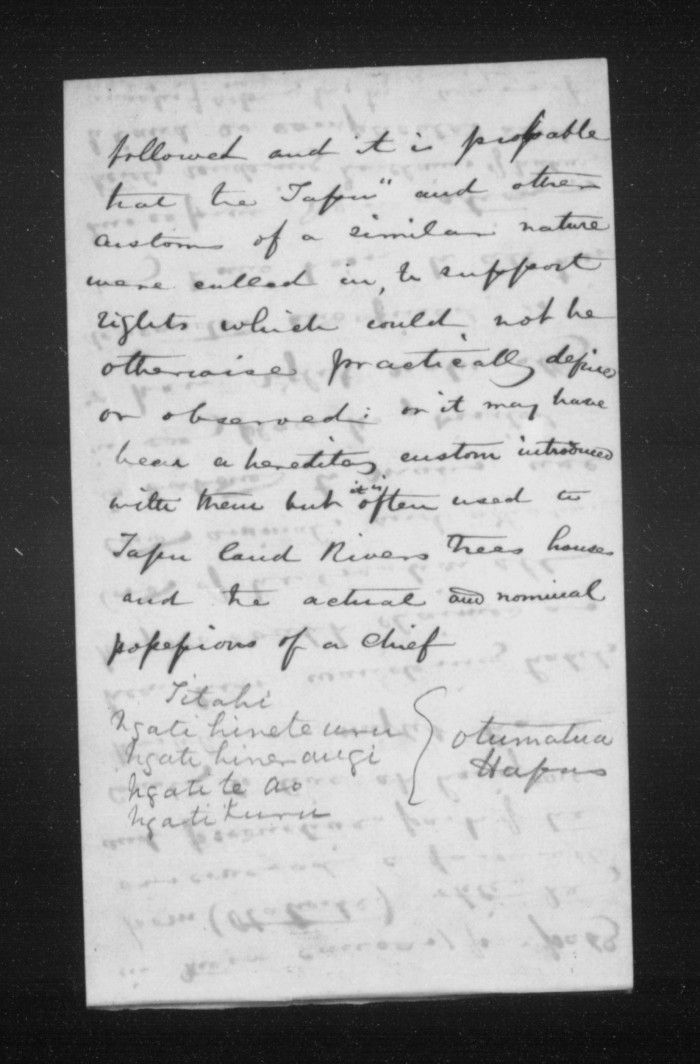 followed and it is probable
that the Tapu" and other
customs of a similar nature
were called in, to support
rights which could not be
otherwise practically define
or observed: or it may have
been a heredity custom introduced
with them but it is often used to
Tapu land Rivers Trees houses
and the actual and nominal
possessions of a chief
Titahi
Ngati hinete uru
Ngati hinerangi
Ngati te ao
Ngati
otumatua
Hapus